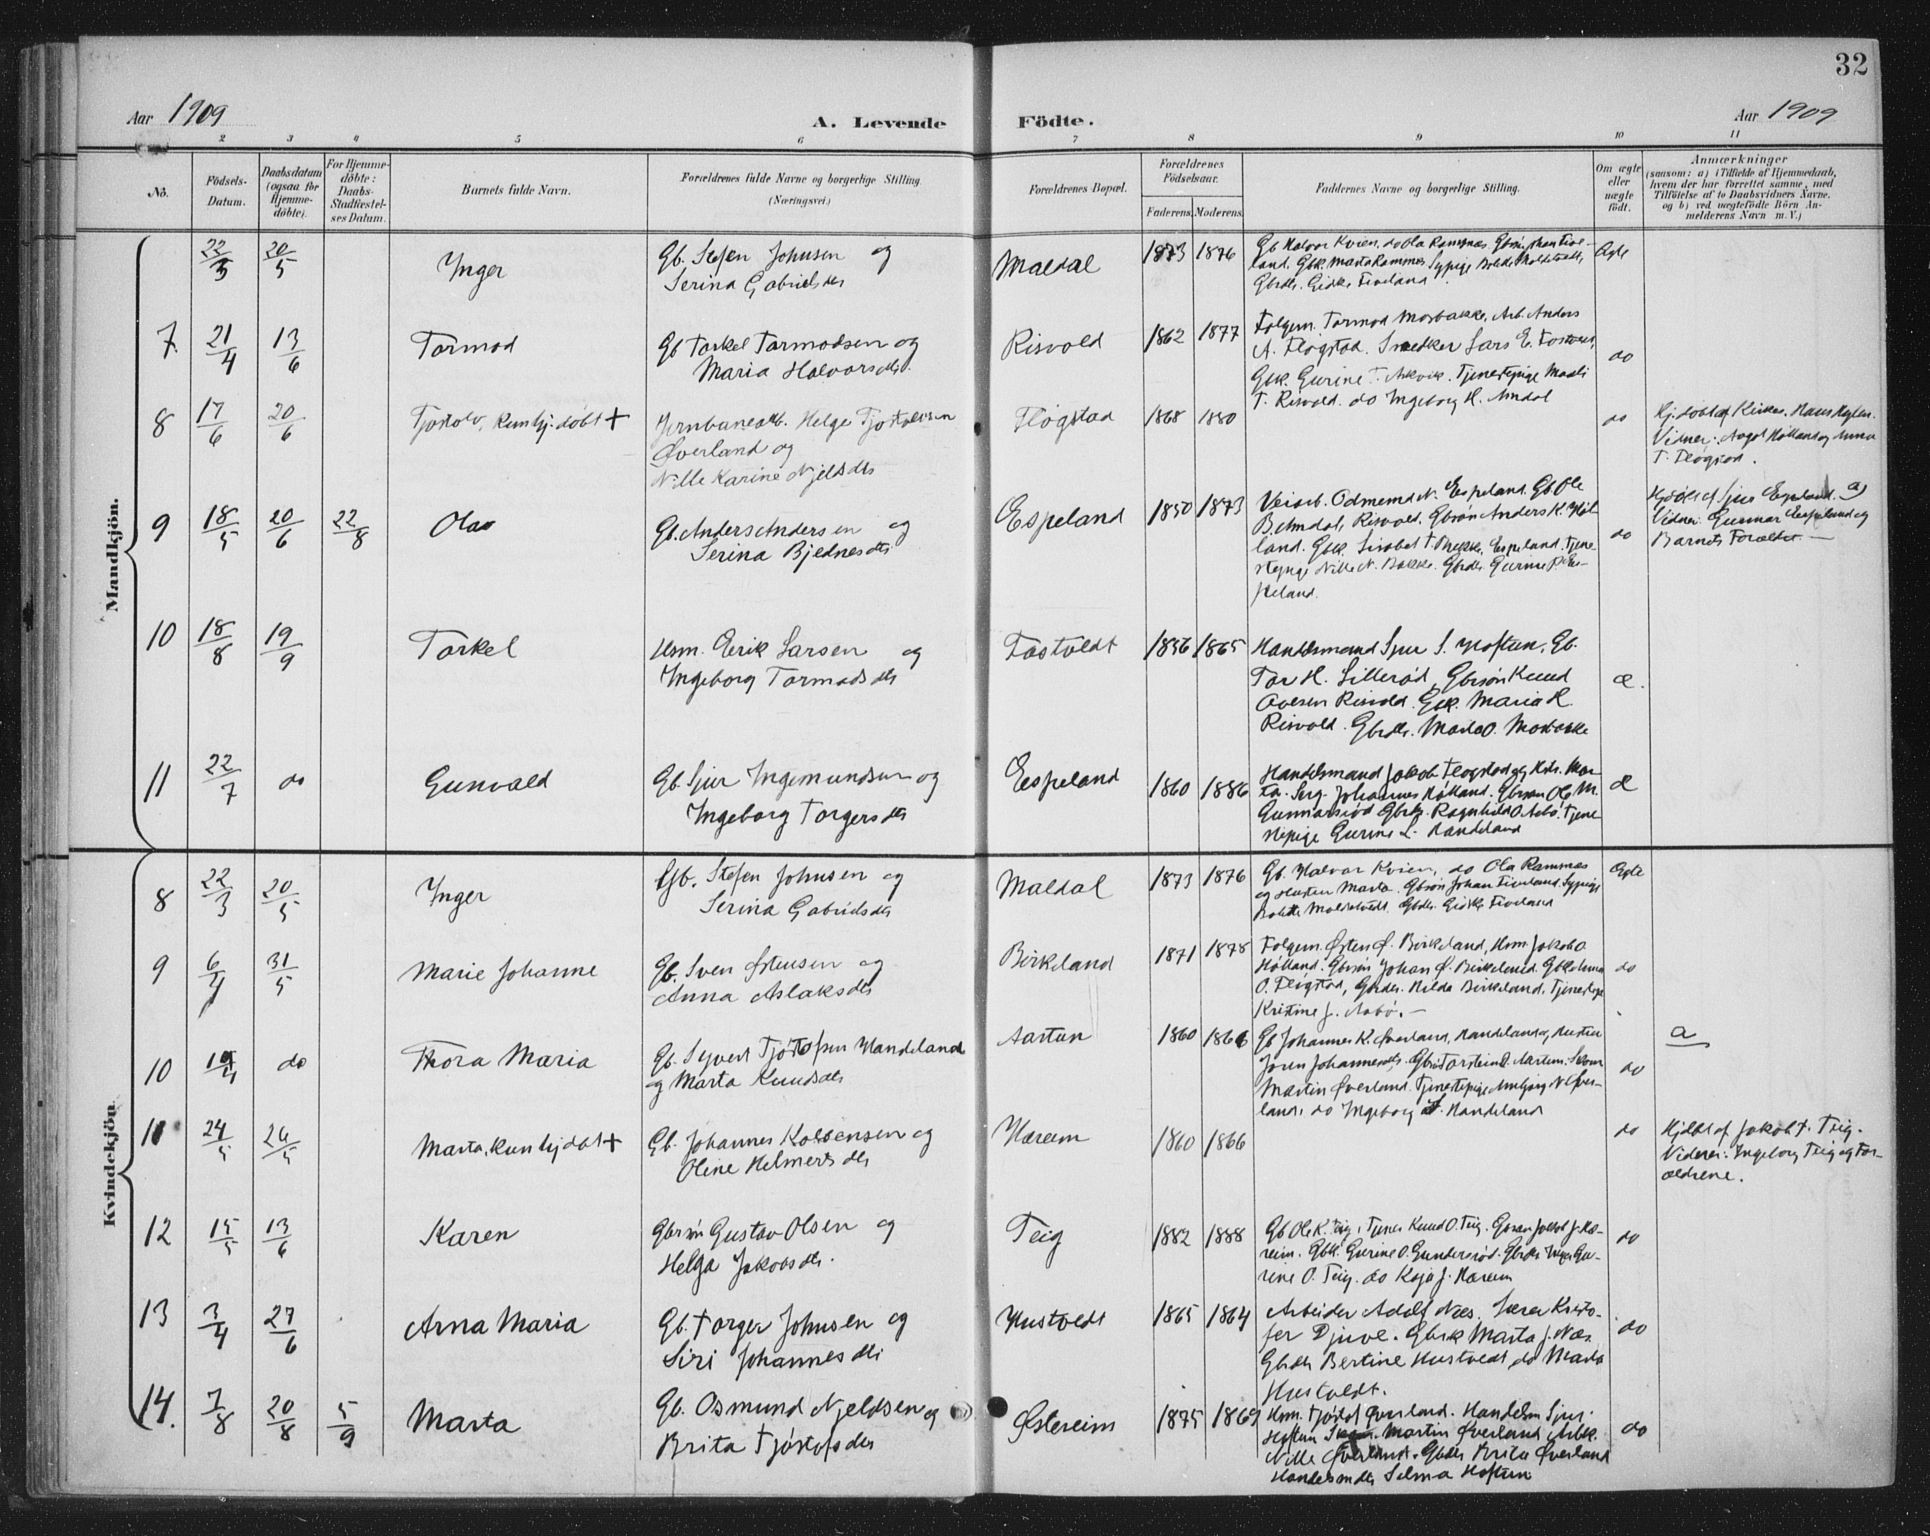 32
Aar 1909
A. Levende Födte.
Aar 1909
2 3 4 5 6 7 8 9 10 11
No.
Födsels-
Datum.
Daabsdatum
(ogsaa for
Hjemme-
döbte).
For Hjemme-
döbte:
Daabs-
Stadfæstel-
ses Datum.
Barnets fulde Navn.
Forældrenes fulde Navne og borgerlige Stilling.
(Næringsvei.)
Forældrenes Bopæl.
Forældrenes
Födselsaar.
Faderens. Moderens.
Faddernes Navne og borgerlige Stilling.
Om ægte
eller
uægte
födt.
Anmærkninger
(saasom: a) i Tilfælde af Hjemmedaab,
hvem der har forrettet samme, med
Tilföielse af to Daabsvidners Navne.
og b) ved uægtefödte Börn An-
melderens Navn m. V.)
Mandkjön.
22/3 20/5 Inger
Gb. Stefen Johnsen og
Serina Gabrielsdtr
Maldal 1873 1876
Gb Halvor Kvien, do Ola Ramnæs
land. Gbk. Marta Ramnes Sypige
Gbrdtr. Giske Tveland
Ægte
7. 21/4 13/6 Tormod
Gb Torkel Tormodsen og
Maria Halvorsdtr.
Risvold 1862 1877
Folgem. Tormod Mosbakke, Arb. Anders
A. Flógstad. Snedker Lars E. Tostvedt,
Gbk. Gurine T. Askvik. Tjenestepige Maali
T. Risvold. do Ingeborg H. Amdal
do
8 17/6 20/6 Tjostolv, kun hj. döbt +
Jernbanearb. Helge Tjostolvsen
Øverland og
Nille Karine Njelsdtr
Flógstad 1868 1880
do
Hj. döbt af Kirkes. Hans Hylen.
Vidner: Aagot Hólland og Anna
T. Flógstad.
9 18/5 20/6 22/8 Olav
Gb. Anders Andersen og
Serina Bjednesdtr
Espeland 1850 1873
Veiarb. Odmund N. Espeland. Gb. Ole
B. Amdal, Risvold. Gbrsön Anders K. Höl-
land. Gbk. Lisabet T. Espeland. Tjene-
stepige Nille N. Bakke. Gbrdtr Gurine P. Es-
peland.
do
Hj döbt af Sjur Espeland. a)
Vidner: Gunnar Espeland og
Barnets Forældre —
10 18/8 19/9 Torkel
Hsm. Eerik Larsen og
Ingeborg Tormodsdtr
Tostvedt 1856 1865
Handelsmand Sjur S. Hoftun, Gb.
Tor H. Lilleród, Gbrsön Knud
Ovesen Risvold. Gbk. Maria H.
Risvold. Gbrdtr. Marta O. Mosbakke
æ.
11 22/7 do Gunvald
Gb. Sjur Ingemundsen og
Ingeborg Torgersdtr
Espeland 1860 1886
Handelsmand Jakob Flogstad og Hstr. Mar-
ta. Serg. Johannes Hólland. Gbrsön Ole M.
Gunnarsród Gbrdtr. Ragnhild O. Aabö. Tjene
stepige Gurine L. Handeland
æ
Kvindekjön.
8 22/3 20/5 Inger
Gb. Stefen Johnsen og
Serina Gabrielsdtr
Maldal 1873 1876
Gb. Halvor Kvien, do Ola Ramnæs
og Hustru Marta. Gbrsön Johan Tveland. Sypige
Gbrdtr. Giske Tveland
Egte
9 6/4 31/5 Marie Johanne
Gb. Sven Østensen og
Anna Aslaksdtr
Birkeland 1871 1878
Folgem. Østen Ø. Birkeland, Hsm Jakob O.
Hólland. Gbrsön Johan Ø. Birkeland. Gbk
O. Flógstad, Gbrdtr. Hilda Birkeland, Tjenestepige
Kristine J. Aabö. —
do
10 19/4 do Thora Maria
Gb. Syvert Tjóstofsen Handeland
og Marta Knudsdtr
Aartun 1860 1866
Gb Johannes K. Øverland, Handeland og Hustru
Joren Johannesdtr. Gbrsön Torstein Aartun.
Martin Øverland. Tjenestepige Ambjörg N. Øver-
land, do Ingeborg S. Handeland
do
a
11 24/5 26/5 Marta, kun hj döbt +
Gb. Johannes Kolbensen og
Oline Helmertsdtr
Hæreim 1860 1866
do
Hj döbt af Jakob T. Teig.
Vidner: Ingeborg Teig og For-
ældrene.
12 15/5 13/6 Karen
Gbrsön Gustav Olsen og
Helga Jakobsdtr.
Teig 1882 1888
Gb Ole K. Teig, Tjener Knud O. Teig. Gbrsön Jakob J. Hæ-
reim. Gbk. Gurine O. Gundersród. Gbrdtr Inger Gu-
rine O. Teig. do Kaja J. Hæreim
do
13 3/4 27/6 Arna Maria
Gb. Torger Johnsen og
Siri Johannesdtr
Hustvedt 1865 1864
Arbeider Adolf Næs. Lærer Kristo-
fer Djuve. Gbrk Marta J. Næs
Gbrdtr Bertine Hustvedt, do Marta
Hustvedt.
do
14. 7/8 20/8 5/9 Marta
Gb. Osmund Njeldsen og
Brita Tjóstofsdtr
Østereim 1875 1869
Hsm. Tjóstof Øverland. Handelsm Sjur
Hoftun Martin Øverland Arbk.
Nille Øverland. Gbrdtr Brita Øverland
Handelsmdtr Selma Hoftun
do